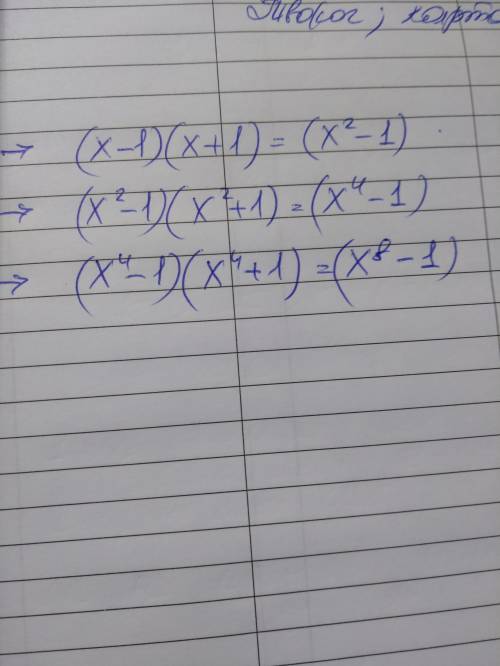 → (x-1)(x+1) = (x²-1)
→ (x²-1)(x²+1) = (x⁴-1)
→ (x⁴-1)(x⁴+1) = (x⁸-1)